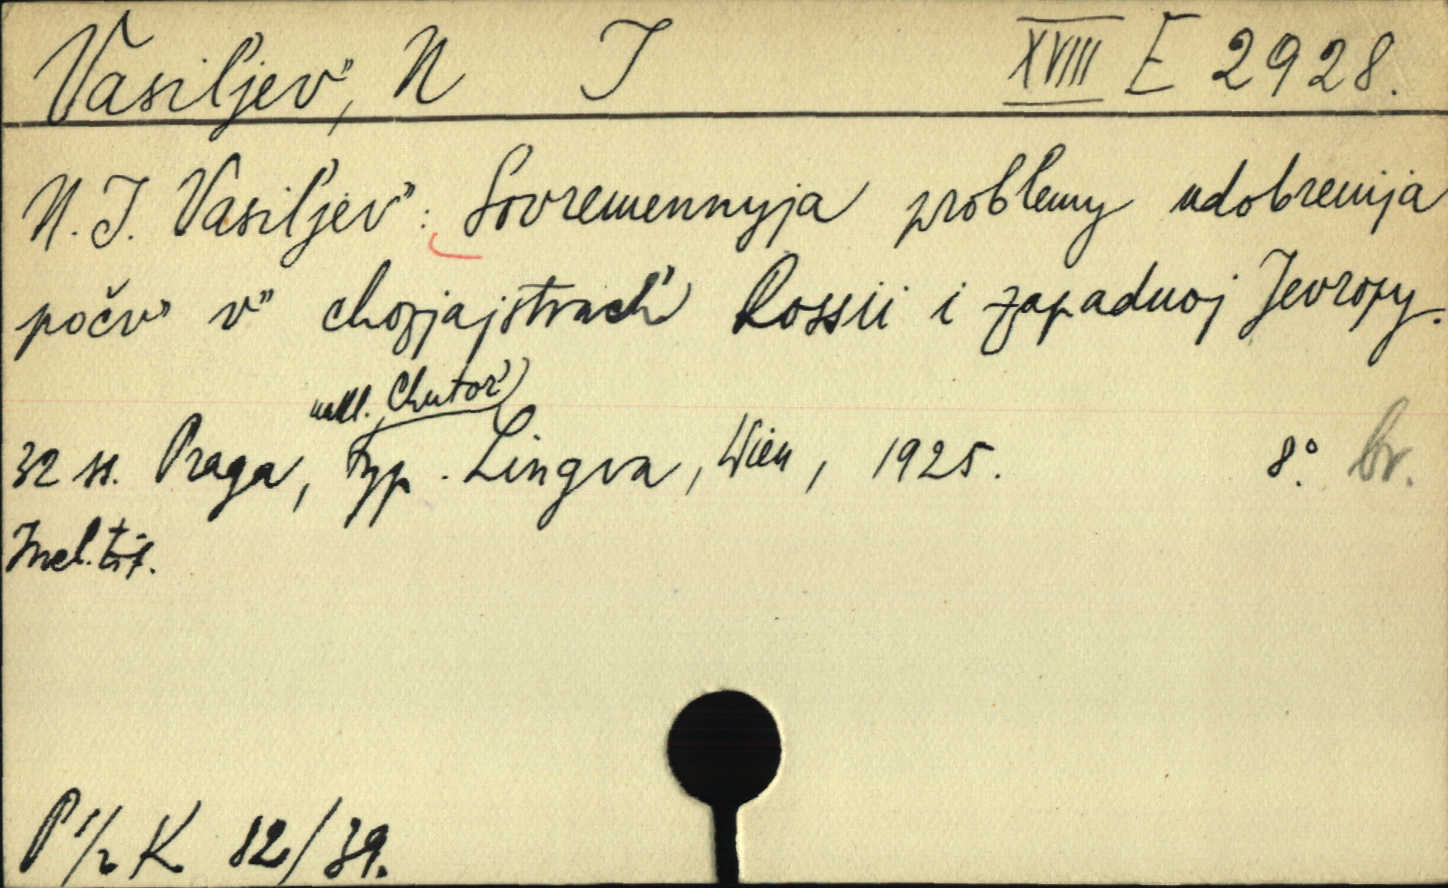 Vasiljev", N I XVIII E 2928.
N. I. Vasiljev": Sovremennyja problemy udobrenija
počv" v" chozjajstvach" Rossii i zapadnoj Jevropy.
nakl. Chutor"
32 st. Praga, typ. Lingva, Wien, 1925. 8°. br.
P 1/2 K 82/39.